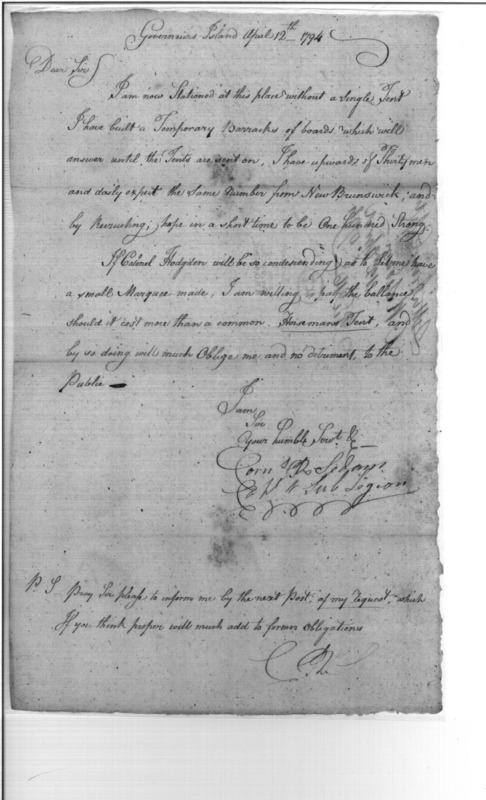 Governeurs Island April 12th 1794
Dear Sir
I am now Stationed at this place without a Single Tent
I have built a Temporary Barracks of boards which will
answer until the Tents are sent on, I have upwards of Thirty men
and daily expect the same number from New Brunswick, and
by Recruiting, hope in a short time to be One hundred Strong.
If Colonel Hodgdon will be so condescending as to let me have
a small Marquee made, I am willing pay the ballance
should it cost more than a common Horsemans Tent, and
by so doing will much Oblige me and no detriment to the
Public —
I am
Sir
Your humble Servt. &c
Corns. R Sedam
Capt 4 Sub Legion
P. S Pray Sir please to inform me by the next Post, of my request, which
If you think proper will much add to former Obligations